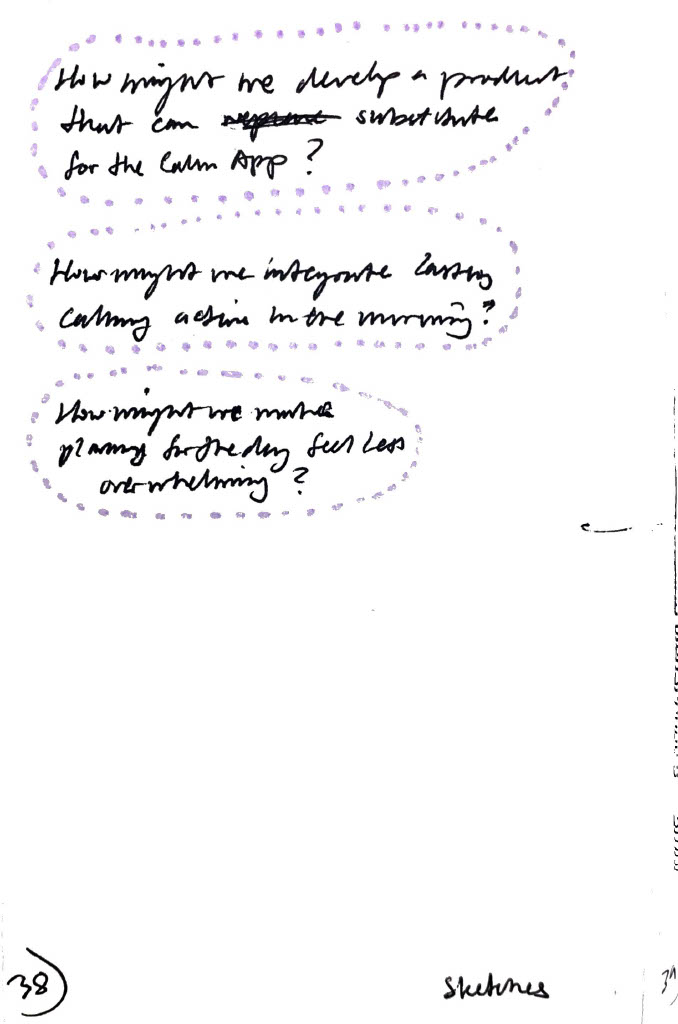 How might we develop a product
that can substitute
for the Calm App ?
How might we integrate lasting
calming action in the morning ?
How might we make
planning for the day feel less
overwhelming ?
38
Sketches